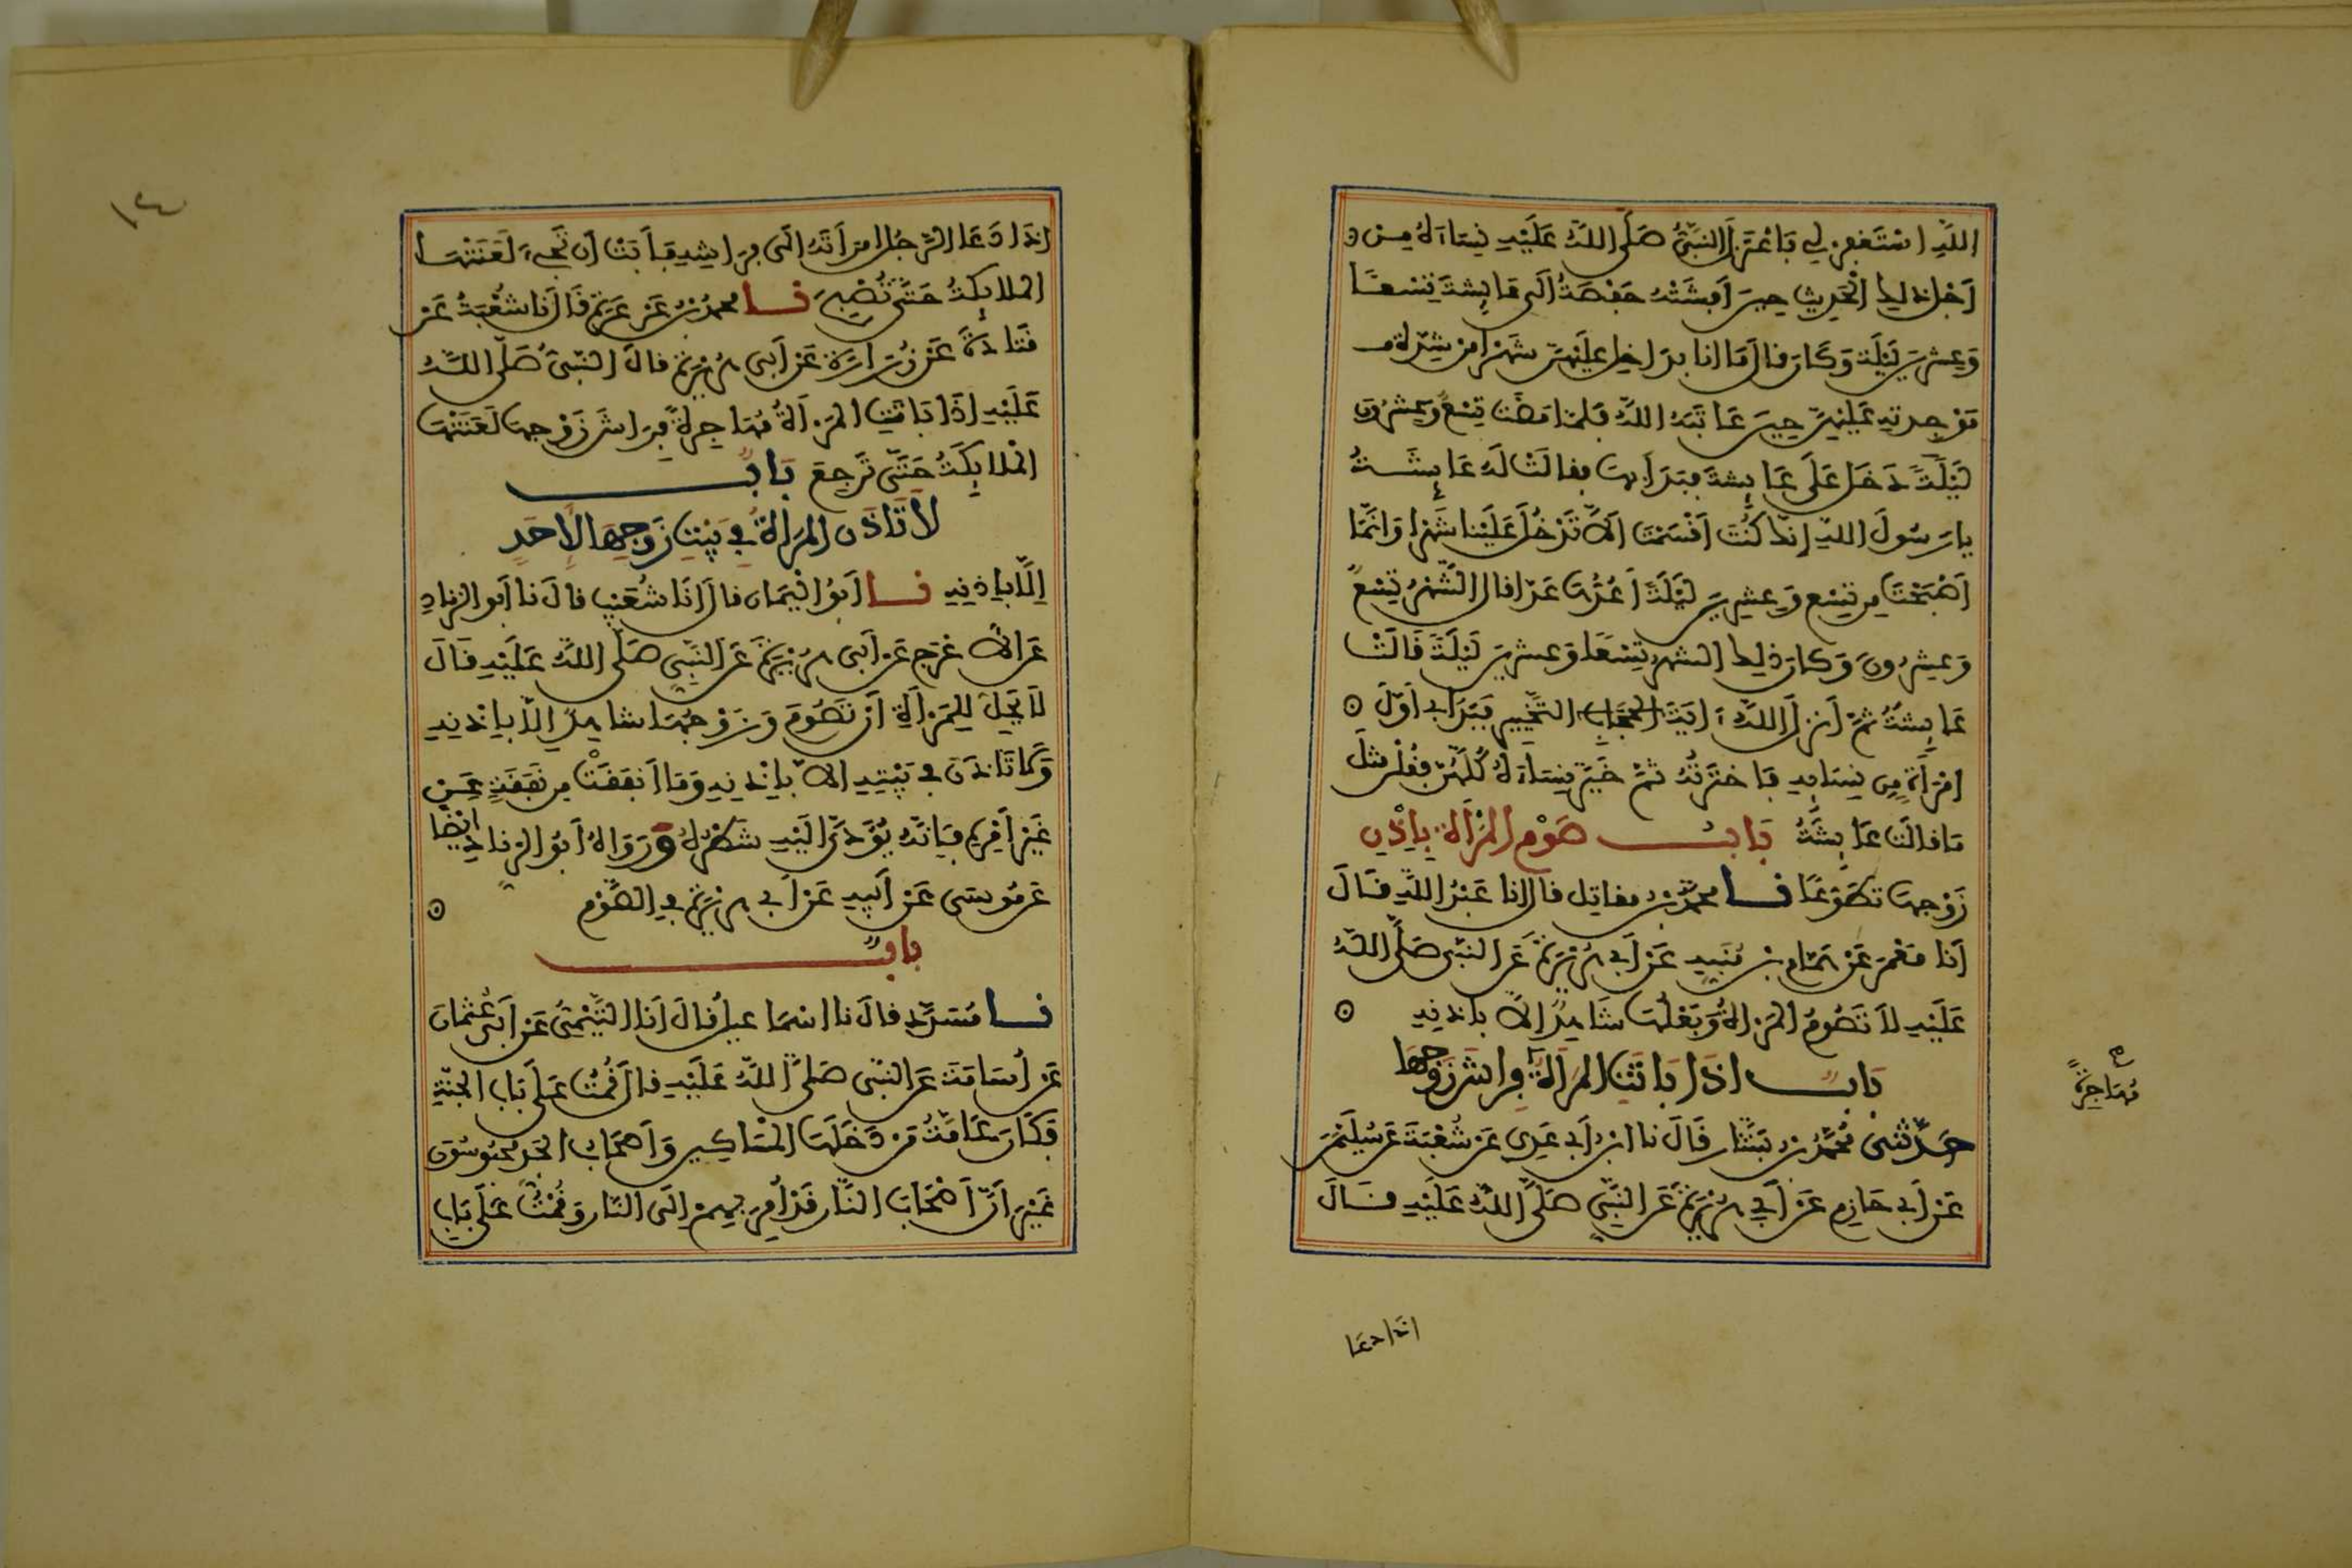 اللَّهِ اسْتَغْفِرْ لِي فَاعْتَزَلَ النَّبِيُّ صَلَّى اللَّهُ عَلَيْهِ نِسَاءَهُ مِنْ
أَجْلِ ذَلِكَ الْحَدِيثِ حِينَ أَفْشَتْهُ حَفْصَةُ إِلَى عَائِشَةَ تِسْعًا
وَعِشْرِينَ لَيْلَةً وَكَانَ قَالَ مَا أَنَا بِدَاخِلٍ عَلَيْهِنَّ شَهْرًا مِنْ شِدَّةِ
مَوْجِدَتِهِ عَلَيْهِنَّ حِينَ عَاتَبَهُ اللَّهُ فَلَمَّا مَضَتْ تِسْعٌ وَعِشْرُونَ
لَيْلَةً دَخَلَ عَلَى عَائِشَةَ فَبَدَأَ بِهَا فَقَالَتْ لَهُ عَائِشَةُ
يَا رَسُولَ اللَّهِ إِنَّكَ كُنْتَ أَقْسَمْتَ أَلَّا تَدْخُلَ عَلَيْنَا شَهْرًا وَإِنَّمَا
أَصْبَحْتَ مِنْ تِسْعٍ وَعِشْرِينَ لَيْلَةً أَعُدُّهَا عَدًّا فَقَالَ الشَّهْرُ تِسْعٌ
وَعِشْرُونَ وَكَانَ ذَلِكَ الشَّهْرُ تِسْعًا وَعِشْرِينَ لَيْلَةً قَالَتْ
عَائِشَةُ ثُمَّ أَنْزَلَ اللَّهُ آيَةَ التَّخْيِيرِ فَبَدَأَ بِي أَوَّلَ
امْرَأَةٍ مِنْ نِسَائِهِ فَاخْتَرْتُهُ ثُمَّ خَيَّرَ نِسَاءَهُ كُلَّهُنَّ فَقُلْنَ مِثْلَ
مَا قَالَتْ عَائِشَةُ بَابُ صَوْمِ الْمَرْأَةِ بِإِذْنِ
زَوْجِهَا تَطَوُّعًا نا مُحَمَّدُ بْنُ مُقَاتِلٍ قَالَ أَنَا عَبْدُ اللَّهِ قَالَ
أَنَا مَعْمَرٌ عَنْ هَمَّامِ بْنِ مُنَبِّهٍ عَنْ أَبِي هُرَيْرَةَ عَنِ النَّبِيِّ صَلَّى اللَّهُ
عَلَيْهِ لَا تَصُومُ الْمَرْأَةُ وَبَعْلُهَا شَاهِدٌ إِلَّا بِإِذْنِهِ
بَابٌ إِذَا بَاتَتِ الْمَرْأَةُ فِرَاشَ زَوْجِهَا
مُهَاجِرَةً
حَدَّثَنِي مُحَمَّدُ بْنُ بَشَّارٍ قَالَ نَا ابْنُ أَبِي عَدِيٍّ عَنْ شُعْبَةَ عَنْ سُلَيْمَنَ
عَنْ أَبِي حَازِمٍ عَنْ أَبِي هُرَيْرَةَ عَنِ النَّبِيِّ صَلَّى اللَّهُ عَلَيْهِ قَالَ
إِذَا دَعَا
١٤
إِذَا دَعَا الرَّجُلُ امْرَأَتَهُ إِلَى فِرَاشِهِ فَأَبَتْ أَنْ تَجِيءَ لَعَنَتْهَا
الْمَلَائِكَةُ حَتَّى تُصْبِحَ نا مُحَمَّدُ بْنُ عَرْعَرَةَ قَالَ نَا شُعْبَةُ عَنْ
قَتَادَةَ عَنْ زُرَارَةَ عَنْ أَبِي هُرَيْرَةَ قَالَ النَّبِيُّ صَلَّى اللَّهُ
عَلَيْهِ إِذَا بَاتَتِ الْمَرْأَةُ مُهَاجِرَةً فِرَاشَ زَوْجِهَا لَعَنَتْهَا
الْمَلَائِكَةُ حَتَّى تَرْجِعَ بَابٌ
لَا تَأْذَنِ الْمَرْأَةُ فِي بَيْتِ زَوْجِهَا لِأَحَدٍ
إِلَّا بِإِذْنِهِ نا أَبُو الْيَمَانِ قَالَ أَنَا شُعَيْبٌ قَالَ نَا أَبُو الزِّنَادِ
عَنِ الْأَعْرَجِ عَنْ أَبِي هُرَيْرَةَ عَنِ النَّبِيِّ صَلَّى اللَّهُ عَلَيْهِ قَالَ
لَا يَحِلُّ لِلْمَرْأَةِ أَنْ تَصُومَ وَزَوْجُهَا شَاهِدٌ إِلَّا بِإِذْنِهِ
وَلَا تَأْذَنَ فِي بَيْتِهِ إِلَّا بِإِذْنِهِ وَمَا أَنْفَقَتْ مِنْ نَفَقَةٍ عَنْ
غَيْرِ أَمْرِهِ فَإِنَّهُ يُؤَدَّى إِلَيْهِ شَطْرُهُ وَرَوَاهُ أَبُو الزِّنَادِ أَيْضًا
عَنْ مُوسَى عَنْ أَبِيهِ عَنْ أَبِي هُرَيْرَةَ فِي الصَّوْمِ
بَابٌ
نا مُسَدَّدٌ قَالَ نَا إِسْمَاعِيلُ قَالَ أَنَا التَّيْمِيُّ عَنْ أَبِي عُثْمَانَ
عَنْ أُسَامَةَ عَنِ النَّبِيِّ صَلَّى اللَّهُ عَلَيْهِ قَالَ قُمْتُ عَلَى بَابِ الْجَنَّةِ
فَكَانَ عَامَّةُ مَنْ دَخَلَهَا الْمَسَاكِينُ وَأَصْحَابُ الْجَدِّ مَحْبُوسُونَ
غَيْرَ أَنَّ أَصْحَابَ النَّارِ قَدْ أُمِرَ بِهِمْ إِلَى النَّارِ وَقُمْتُ عَلَى بَابِ